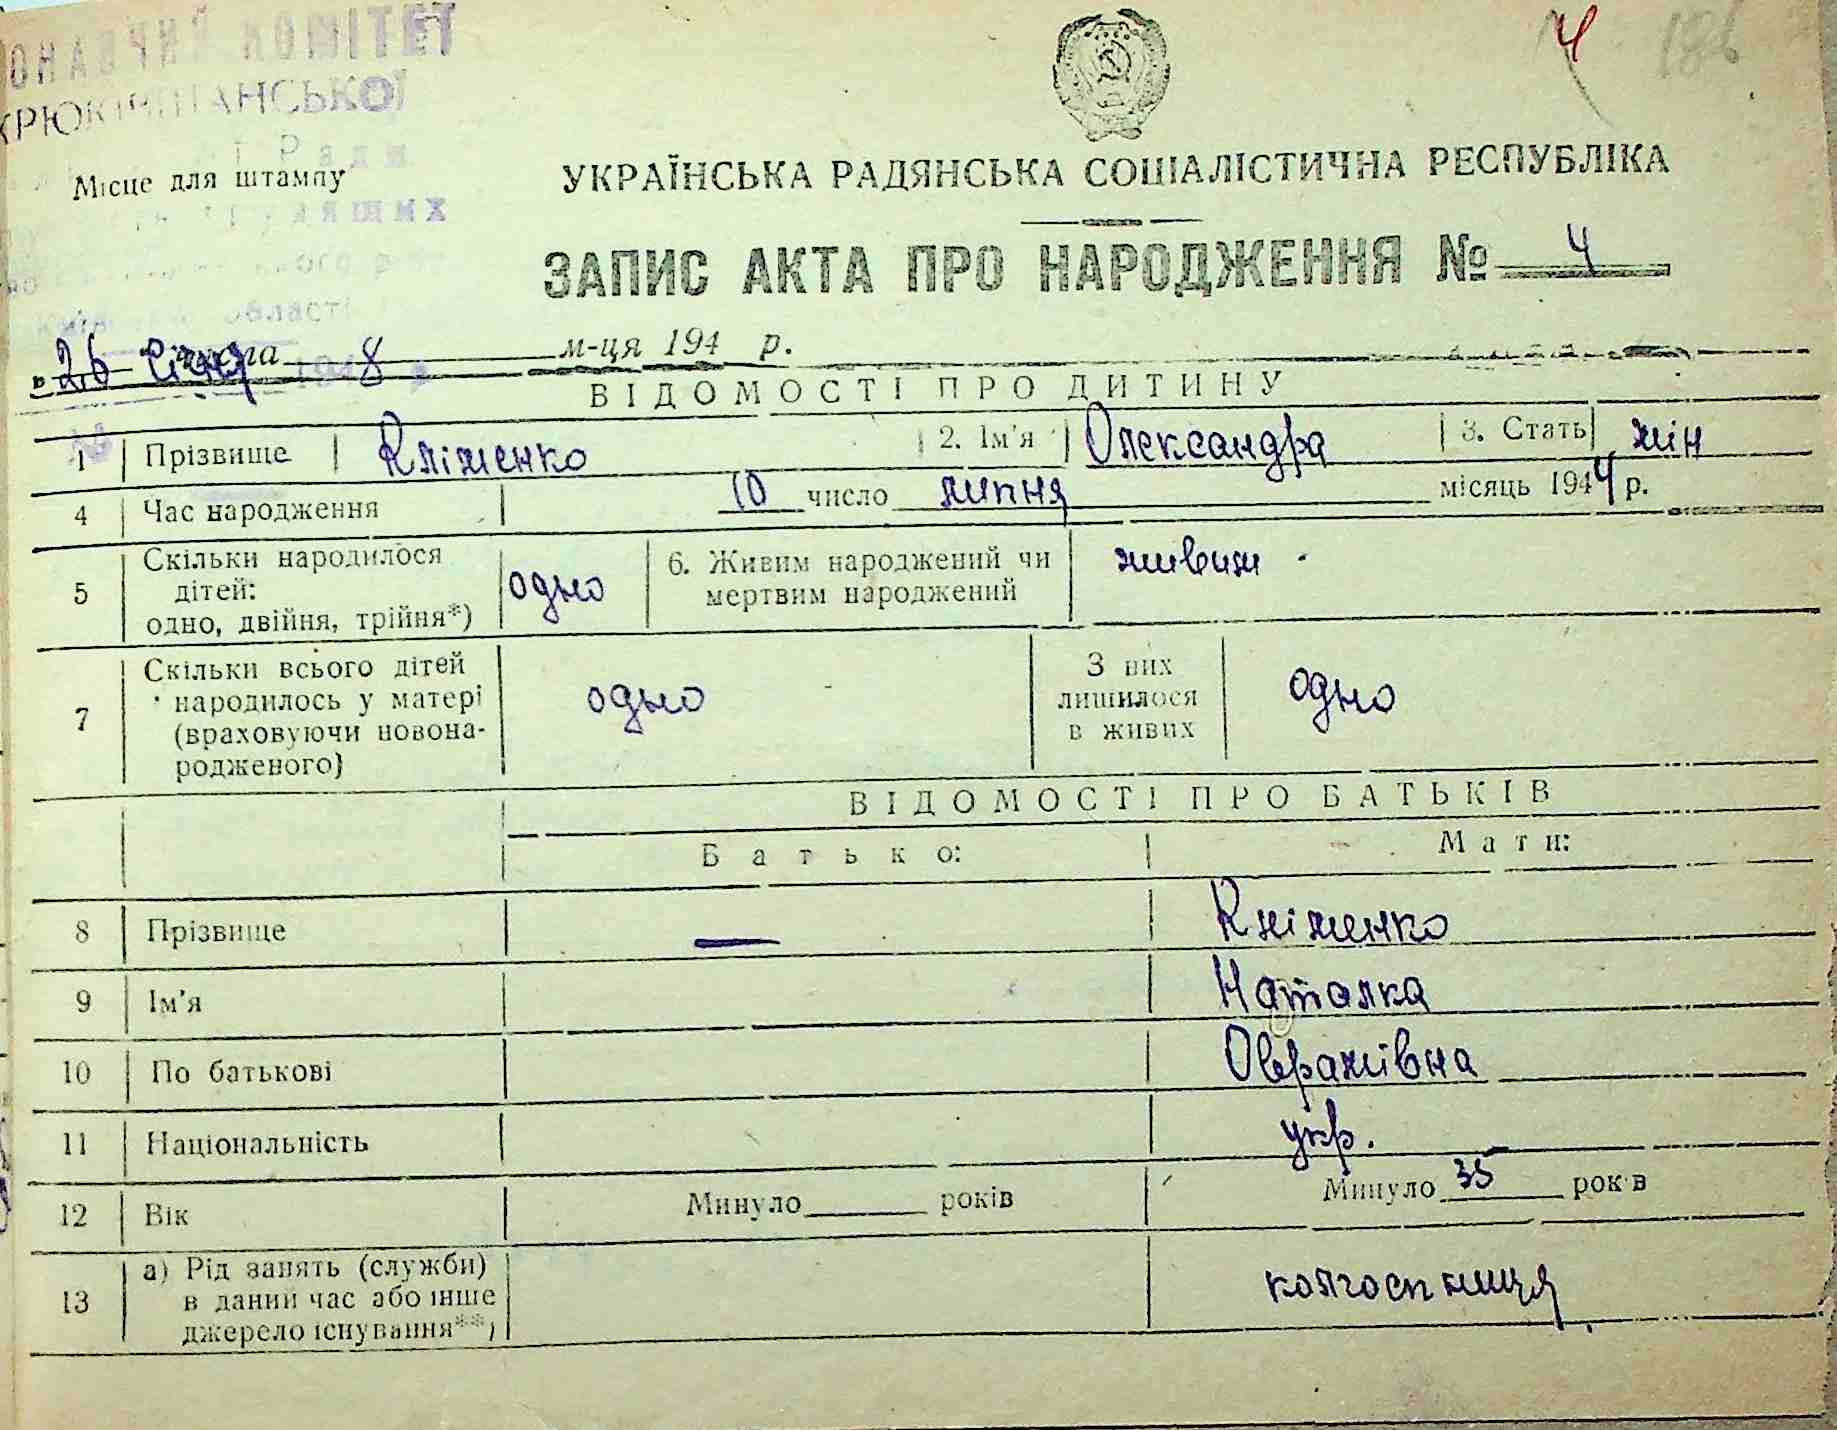 КОМІТЕТ
Ради
Місце для штампу
області
УКРАЇНСЬКА РАДЯНСЬКА СОЦІАЛІСТИЧНА РЕСПУБЛІКА
ЗАПИС АКТА ПРО НАРОДЖЕННЯ № 4
26 січня 1948 м-ця 194 р.
ВІДОМОСТІ ПРО ДИТИНУ
1 Прізвище Кліменко 2. Ім'я Олександра 3. Стать жін
4 Час народження 10 число липня місяць 1944 р.
5 Скільки народилося дітей: одно, двійня, трійня*) одно 6. Живим народжений чи мертвим народжений живим
7 Скільки всього дітей народилось у матері (враховуючи новонародженого) одно З них лишилося в живих одно
ВІДОМОСТІ ПРО БАТЬКІВ
Батько: Мати:
8 Прізвище — Кліменко
9 Ім'я Наталка
10 По батькові Оврамівна
11 Національність укр.
12 Вік Минуло років Минуло 35 років
13 а) Рід занять (служби) в даний час або інше джерело існування**) колгоспниця